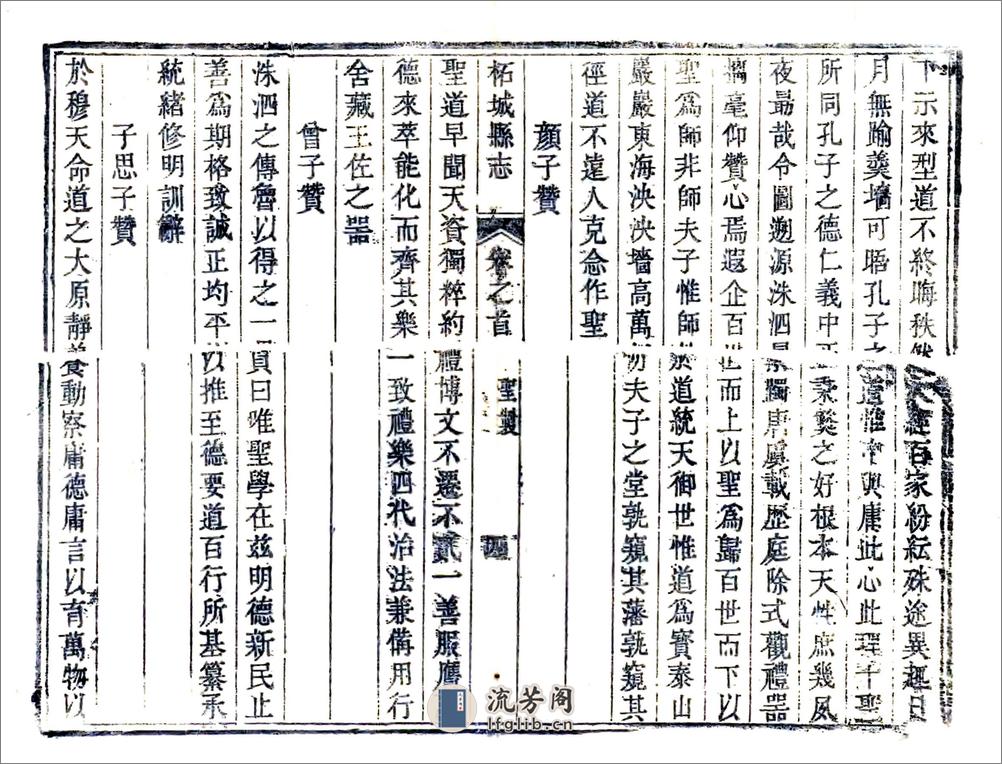 下示來型道不終晦秩然大經百家紛紜殊途異趨日
月無踰羹墻可晤孔子之道惟中與庸此心此理千聖
所同孔子之德仁義中正秉彝之好根本天性庶幾夙
夜勗哉令圖溯源洙泗景躅唐虞載歷庭除式觀禮器
摛毫仰贊心焉遐企百世而上以聖爲歸百世而下以
聖爲師非師夫子惟師於道統天御世惟道爲寶泰山
巖巖東海泱泱墻高萬仞夫子之堂孰窺其藩孰窺其
徑道不遠人克念作聖
顏子贊
柘城縣志 卷之首 聖製 四
聖道早聞天資獨粹約禮博文不遷不貳一善服膺
德來萃能化而齊其樂一致禮樂四代治法兼備用行
舍藏王佐之器
曾子贊
洙泗之傳魯以得之一貫曰唯聖學在兹明德新民止
善爲期格致誠正均平以推至德要道百行所基纂承
統緒修明訓辭
子思子贊
於穆天命道之大原靜養動察庸德庸言以育萬物以
流芳阁
lfglib.cn